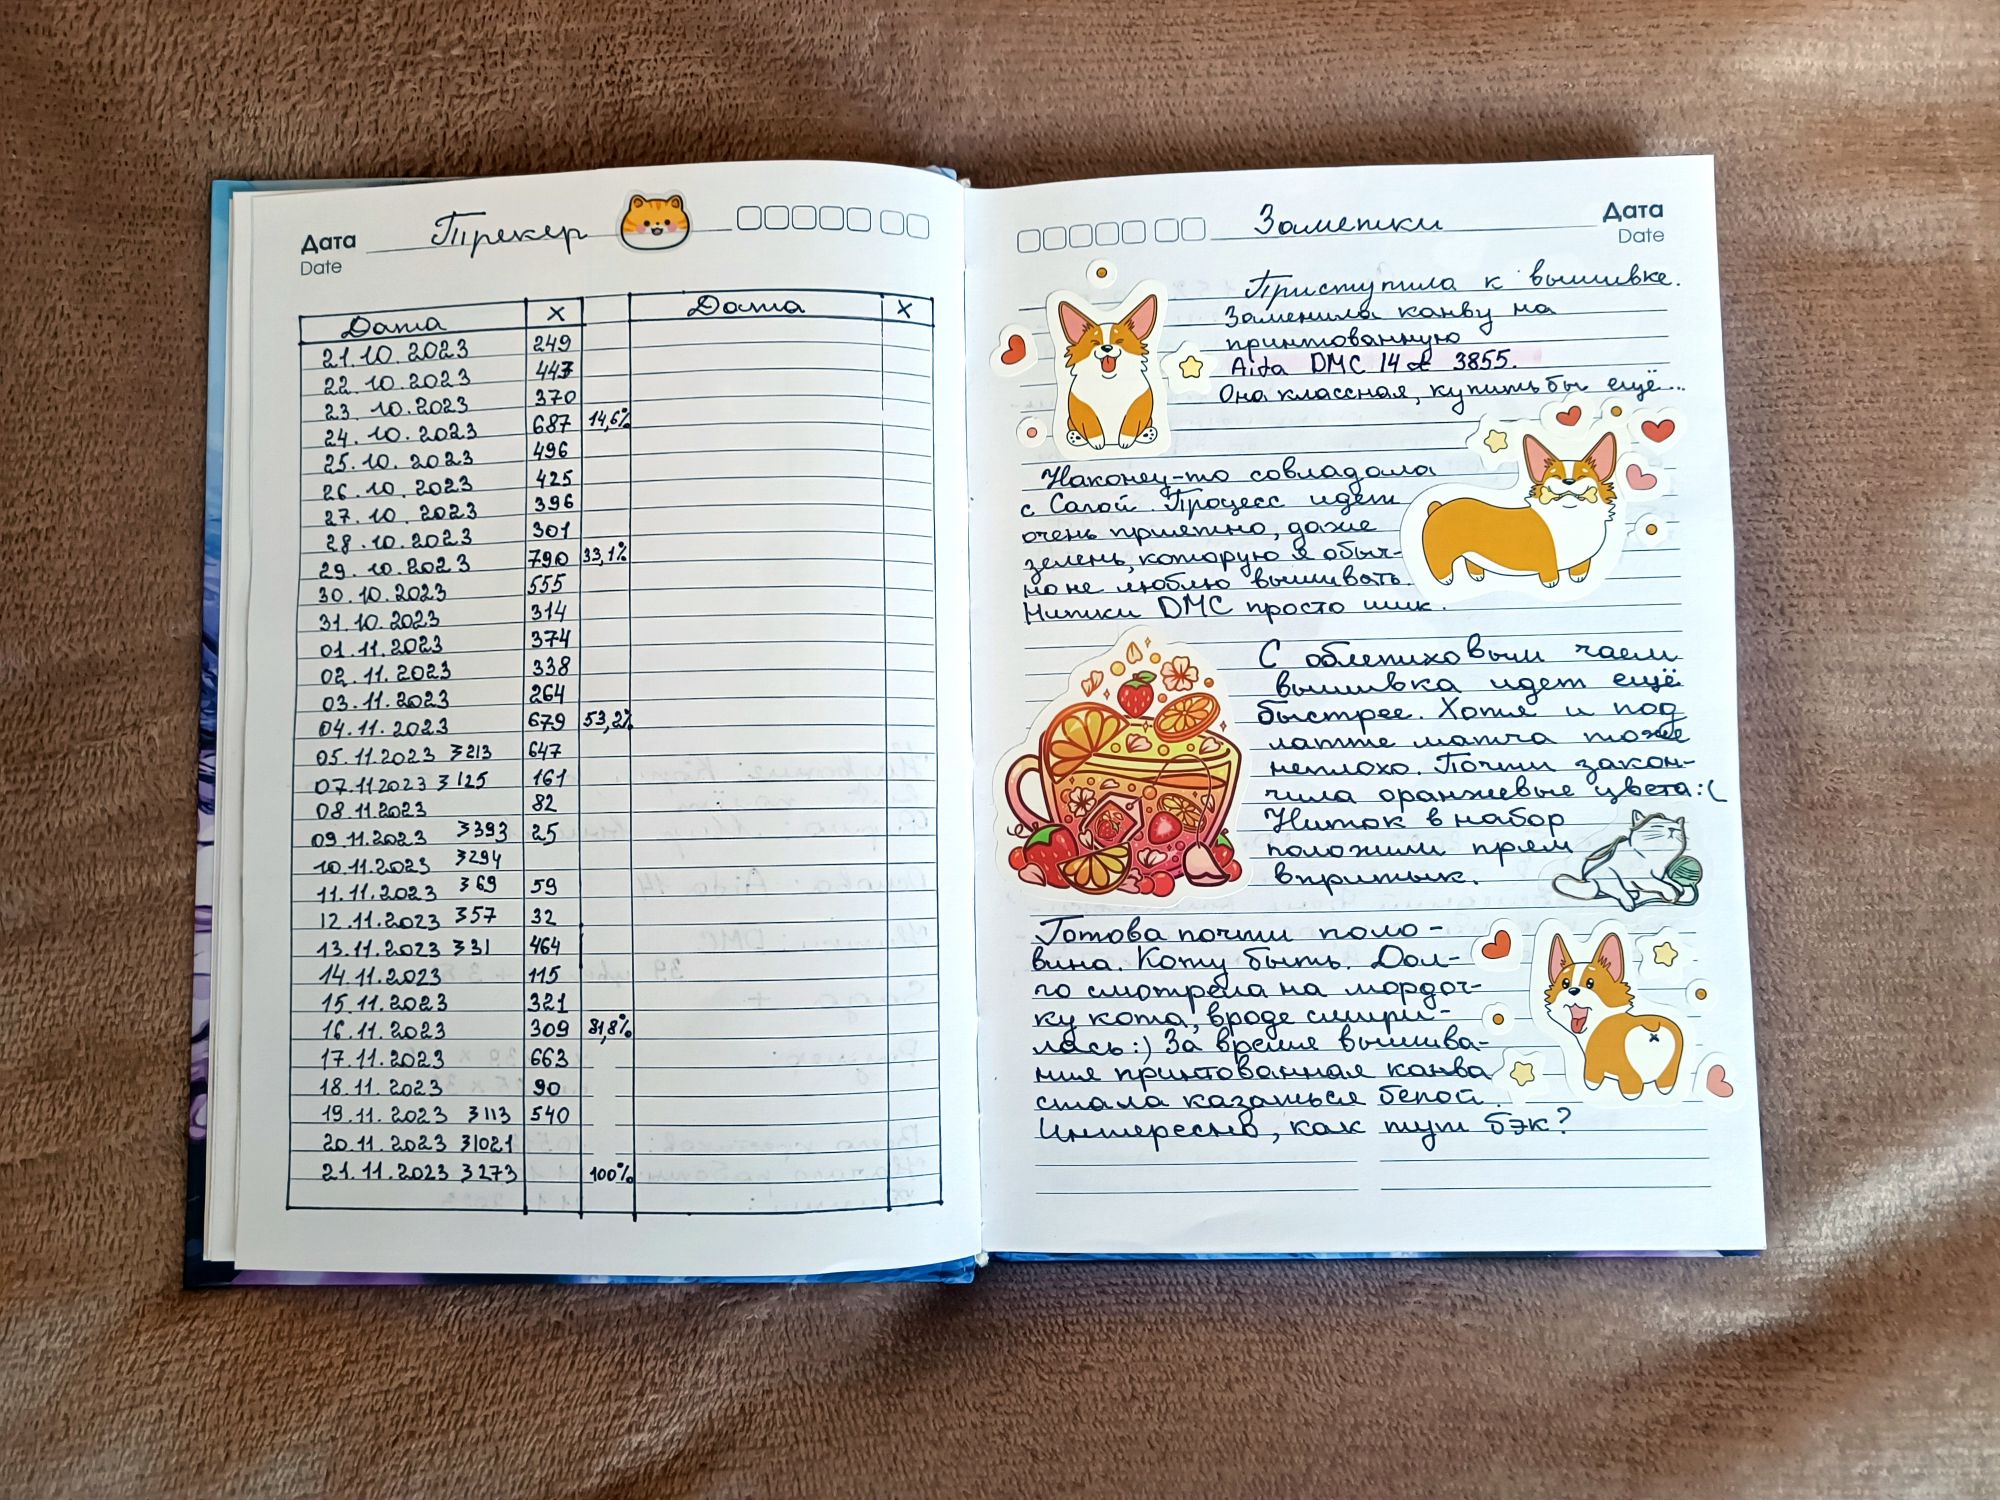 Дата Трекер
Date
Дата X Дата X
21.10.2023 249
22.10.2023 443
23.10.2023 370
24.10.2023 687 14,6%
25.10.2023 496
26.10.2023 425
27.10.2023 396
28.10.2023 301
29.10.2023 790 33,1%
30.10.2023 555
31.10.2023 314
01.11.2023 374
02.11.2023 338
03.11.2023 264
04.11.2023 679 53,2%
05.11.2023 З 213 647
07.11.2023 З 125 161
08.11.2023 82
09.11.2023 З 393 25
10.11.2023 З 294
11.11.2023 З 69 59
12.11.2023 З 57 32
13.11.2023 З 31 464
14.11.2023 115
15.11.2023 321
16.11.2023 309 81,8%
17.11.2023 663
18.11.2023 90
19.11.2023 З 113 540
20.11.2023 З 1021
21.11.2023 З 273 100%
Заметки Дата
Date
Приступила к вышивке.
Заменила канву на
принтованную
Aida DMC 14 3855.
Она классная, купить бы ещё...
Наконец-то совладала
с Сагой. Процесс идет
очень приятно, даже
зелень, которую я обыч-
но не люблю вышивать.
Нитки DMC просто шик.
С облепиховым чаем
вышивка идет ещё
быстрее. Хотя и под
латте матча тоже
неплохо. Почти закон-
чила оранжевые цвета :(
Ниток в набор
положили прям
впритык.
Готова почти поло-
вина. Коту быть. Дол-
го смотрела на мордоч-
ку кота, вроде смири-
лась :) За время вышива-
ния принтованная канва
стала казаться белой.
Интересно, как тут бэк?